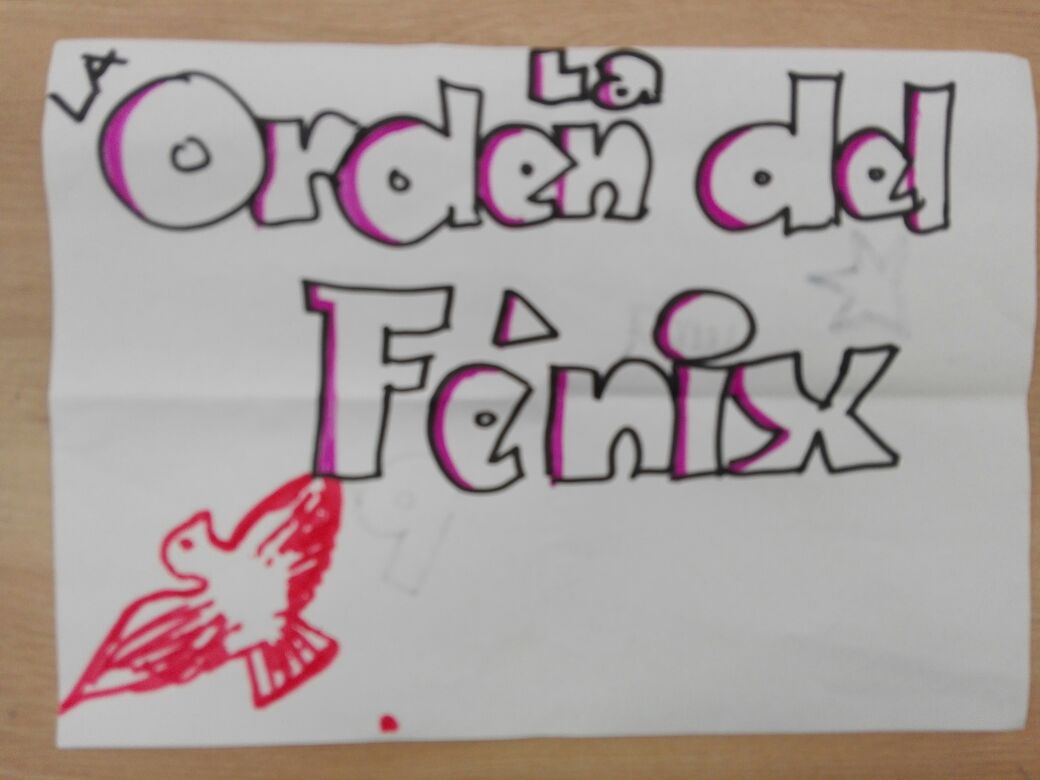 La
LA Orden del
Fénix